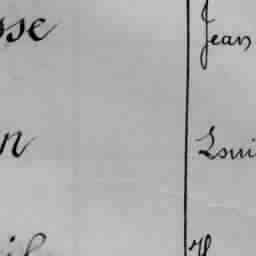 sse Jean
n Loui